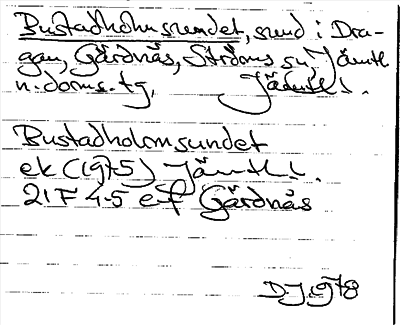 Bustadholmsundet, sund i Dra-
gan, Gärdnäs, Ströms sn, Jämtl
n. doms. tg, Jämtl l.
Bustadholmsundet
ek (1975) Jämtl l.
21F 4-5 e-f Gärdnäs
DJ 1978